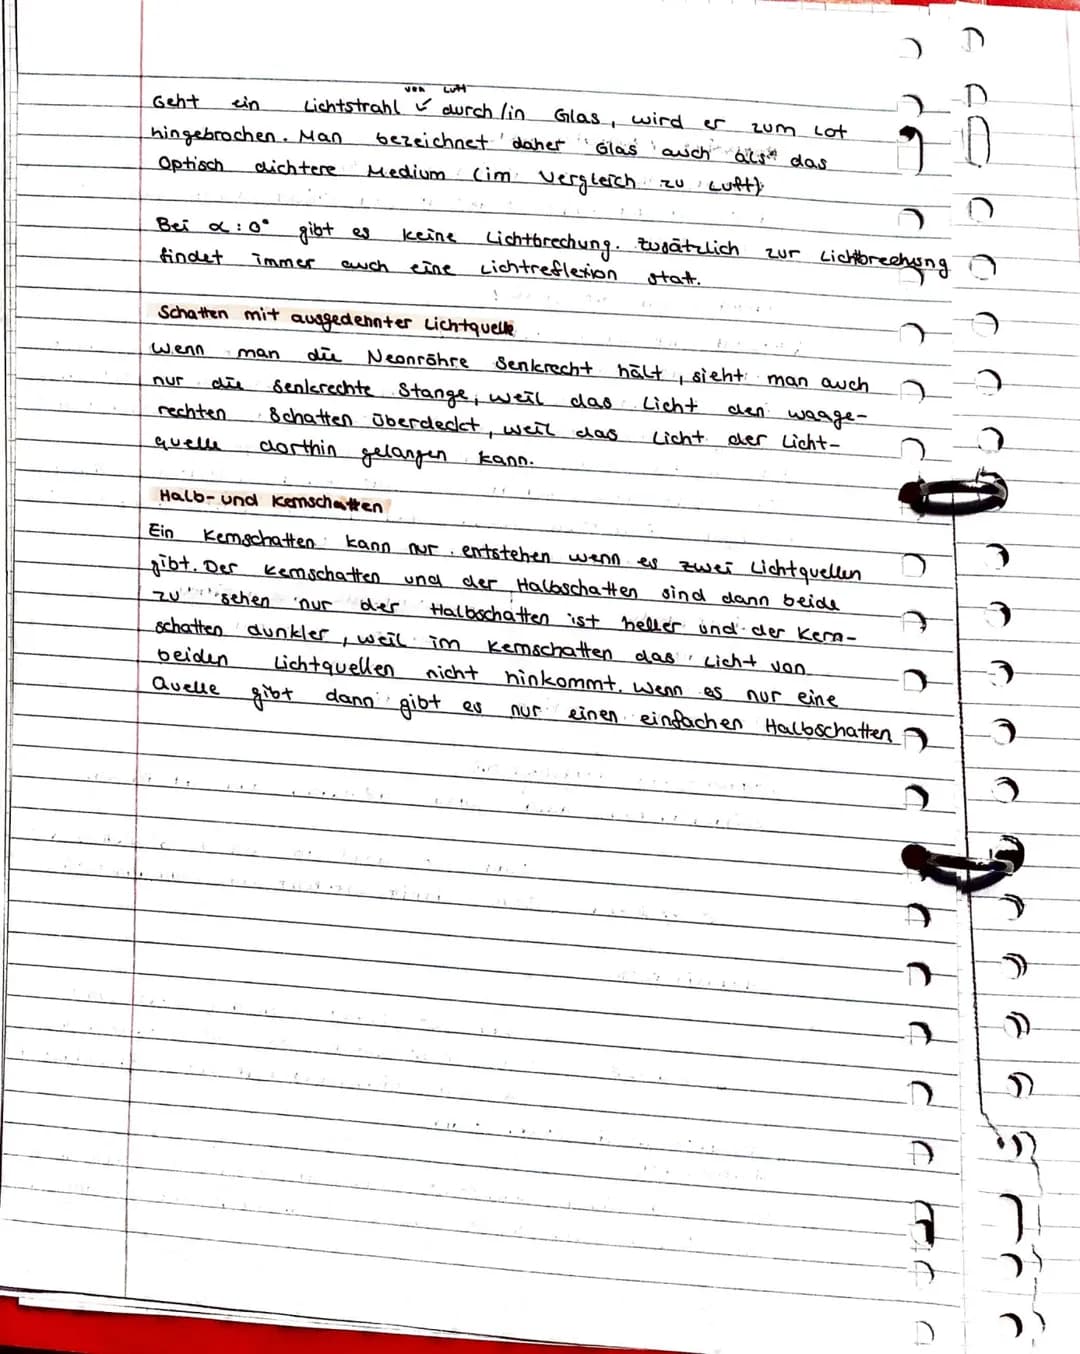 Geht ein Lichtstrahl von Luft durch/in Glas, wird er zum Lot
hingebrochen. Man bezeichnet daher Glas auch als das
Optisch dichtere Medium (im Vergleich zu Luft).
Bei α: 0° gibt es keine Lichtbrechung. Zusätzlich zur Lichtbrechung
findet immer auch eine Lichtreflexion statt.
Schatten mit ausgedehnter Lichtquelle
Wenn man die Neonröhre senkrecht hält, sieht man auch
nur die senkrechte Stange, weil das Licht den waage-
rechten Schatten überdeckt, weil das Licht der Licht-
quelle dorthin gelangen kann.
Halb- und Kernschatten
Ein Kernschatten kann nur entstehen wenn es zwei Lichtquellen
gibt. Der Kernschatten und der Halbschatten sind dann beide
zu sehen nur der Halbschatten ist heller und der Kern-
schatten dunkler, weil im Kernschatten das Licht von
beiden Lichtquellen nicht hinkommt. Wenn es nur eine
Quelle gibt dann gibt es nur einen einfachen Halbschatten